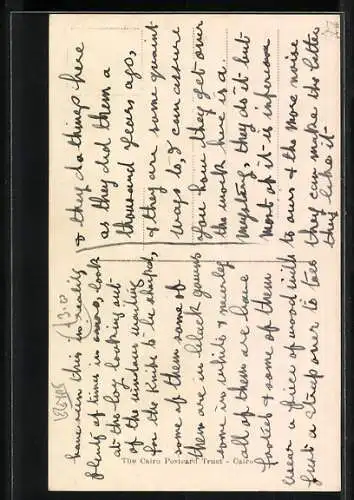 have seen this in reality
plenty of times in        look
at the boy looking out
of the window waiting
for the knife to be sharped,
some of them some of
them are in black gowns
some in white &
all of them are bare
footed & some of them
wear a piece of wood with
just a strap over to toes
& they do things here
as they did them a
thousand years ago,
& they are some quaint
ways to, I can assure
you how they get over
the work here is a
mystery, they do it but
most of it is inferior
to ours & the more noise
they can make the better
they like it
The Cairo Postcard Trust - Cairo